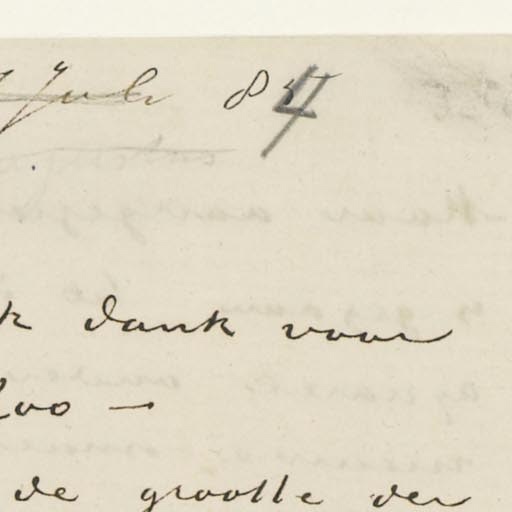 Juli 84
k dank voor
Zoo —
de grootte der